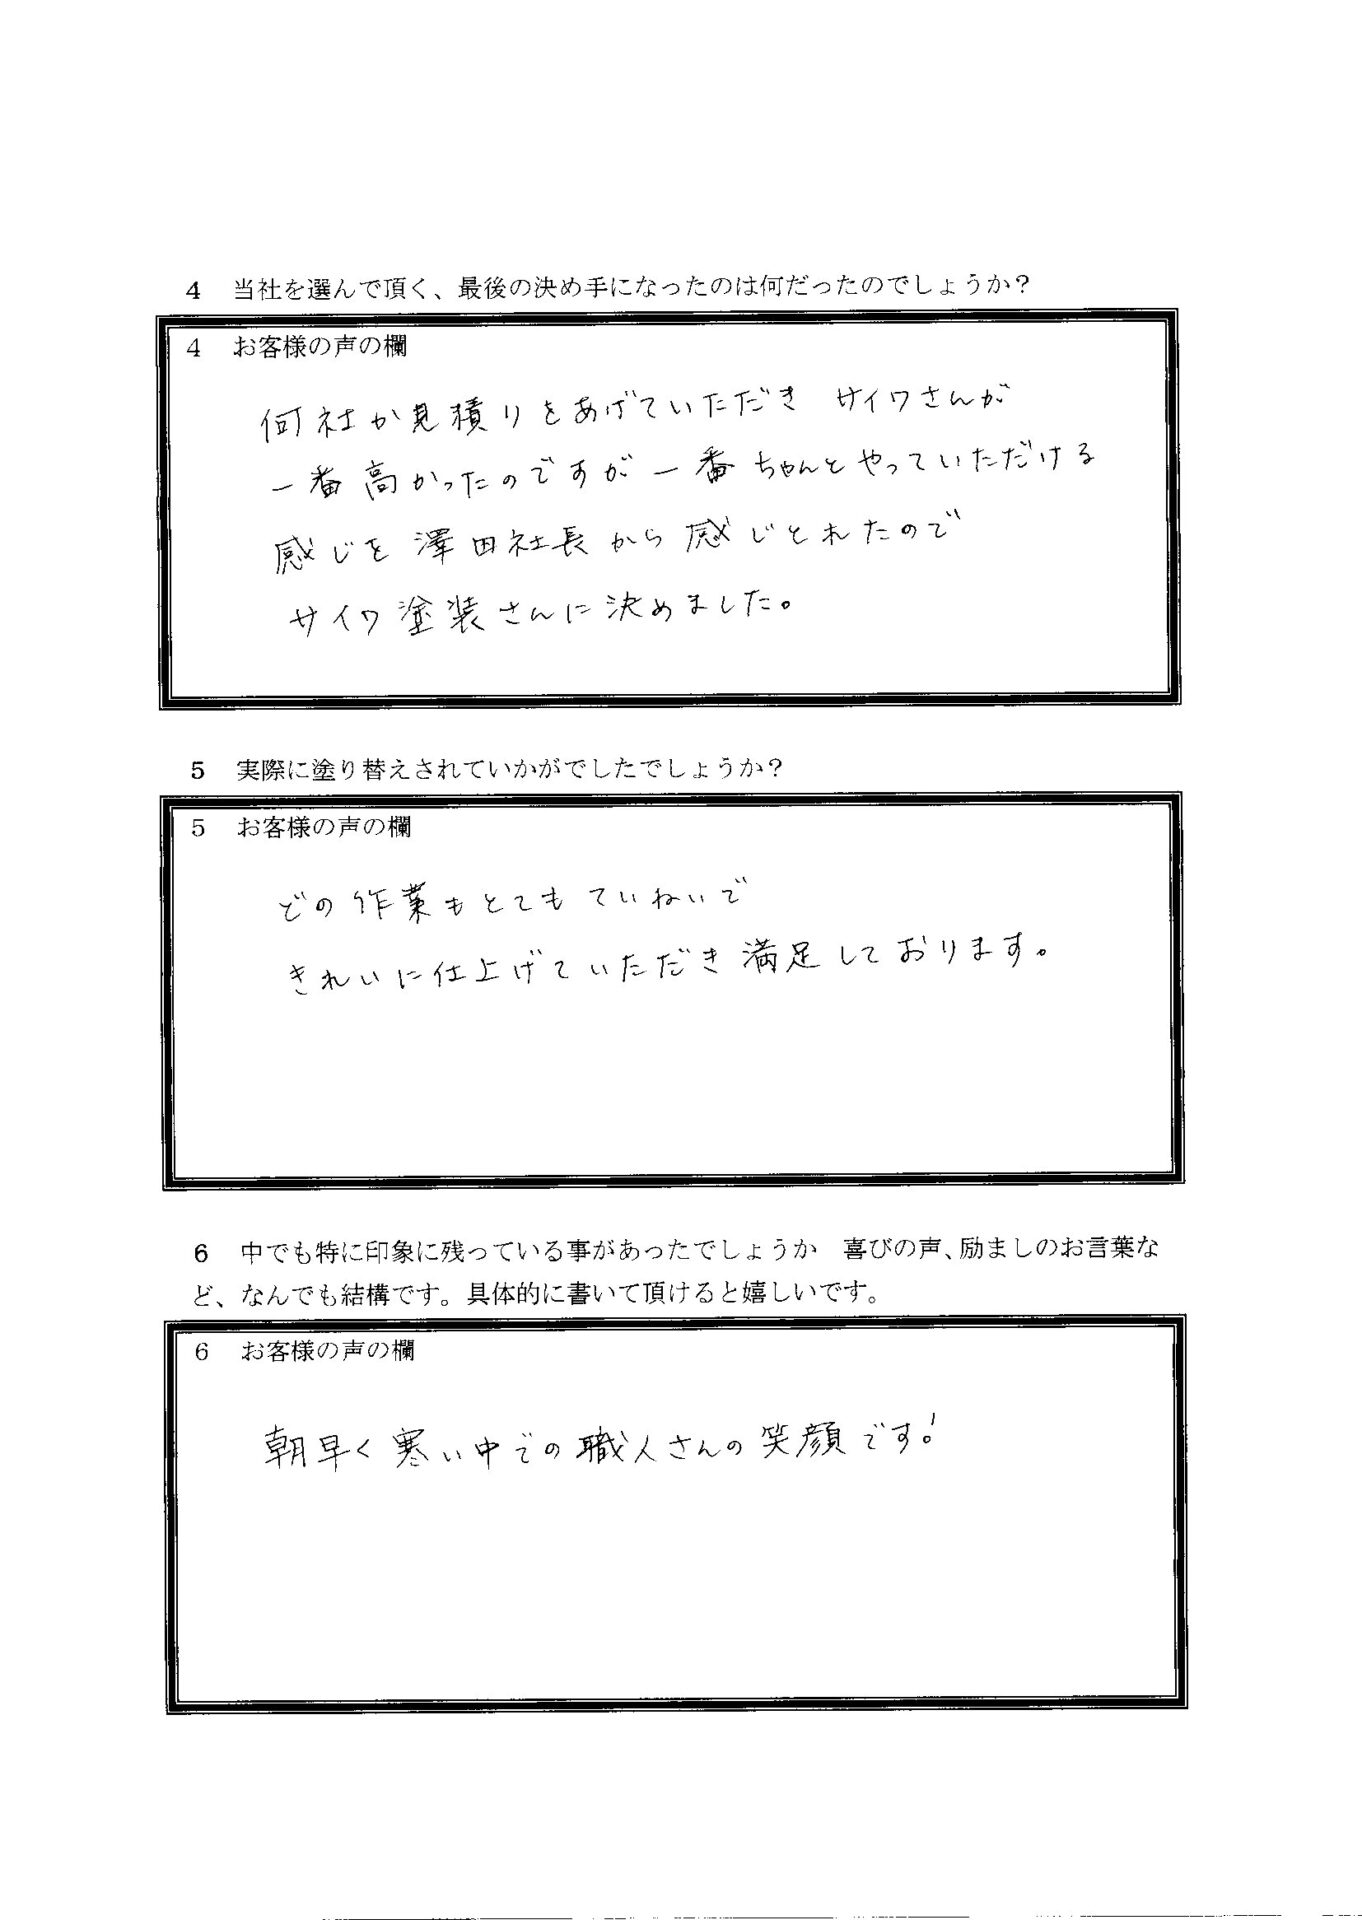 4 当社を選んで頂く、最後の決め手になったのは何だったのでしょうか？
4 お客様の声の欄
何社か見積りをあげていただき サイワさんが
一番高かったのですが一番ちゃんとやっていただける
感じを澤田社長から感じとれたので
サイワ塗装さんに決めました。
5 実際に塗り替えされていかがでしたでしょうか？
5 お客様の声の欄
どの作業もとてもていねいで
きれいに仕上げていただき満足しております。
6 中でも特に印象に残っている事があったでしょうか 喜びの声、励ましのお言葉な
ど、なんでも結構です。具体的に書いて頂けると嬉しいです。
6 お客様の声の欄
朝早く寒い中での職人さんの笑顔です！